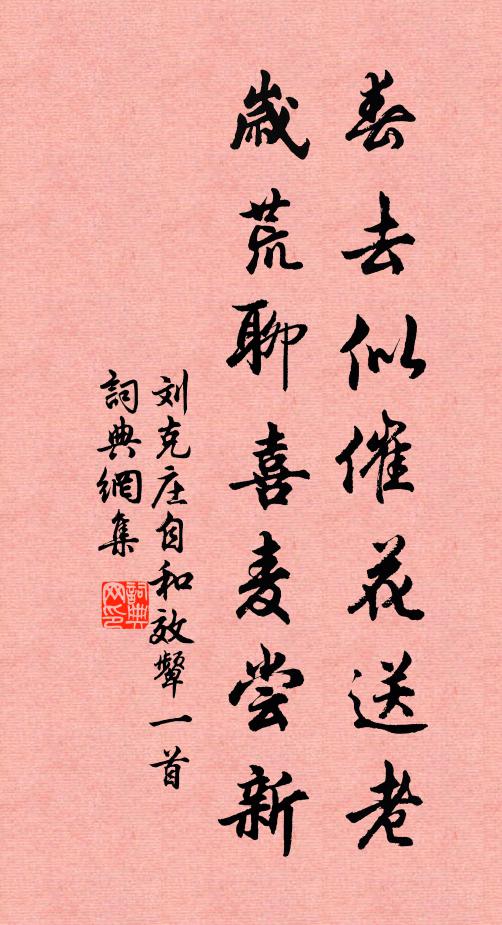 春去似催花送老
歲荒聊喜麦尝新
刘克庄自和效颦一首
詞典網集
詞典网印